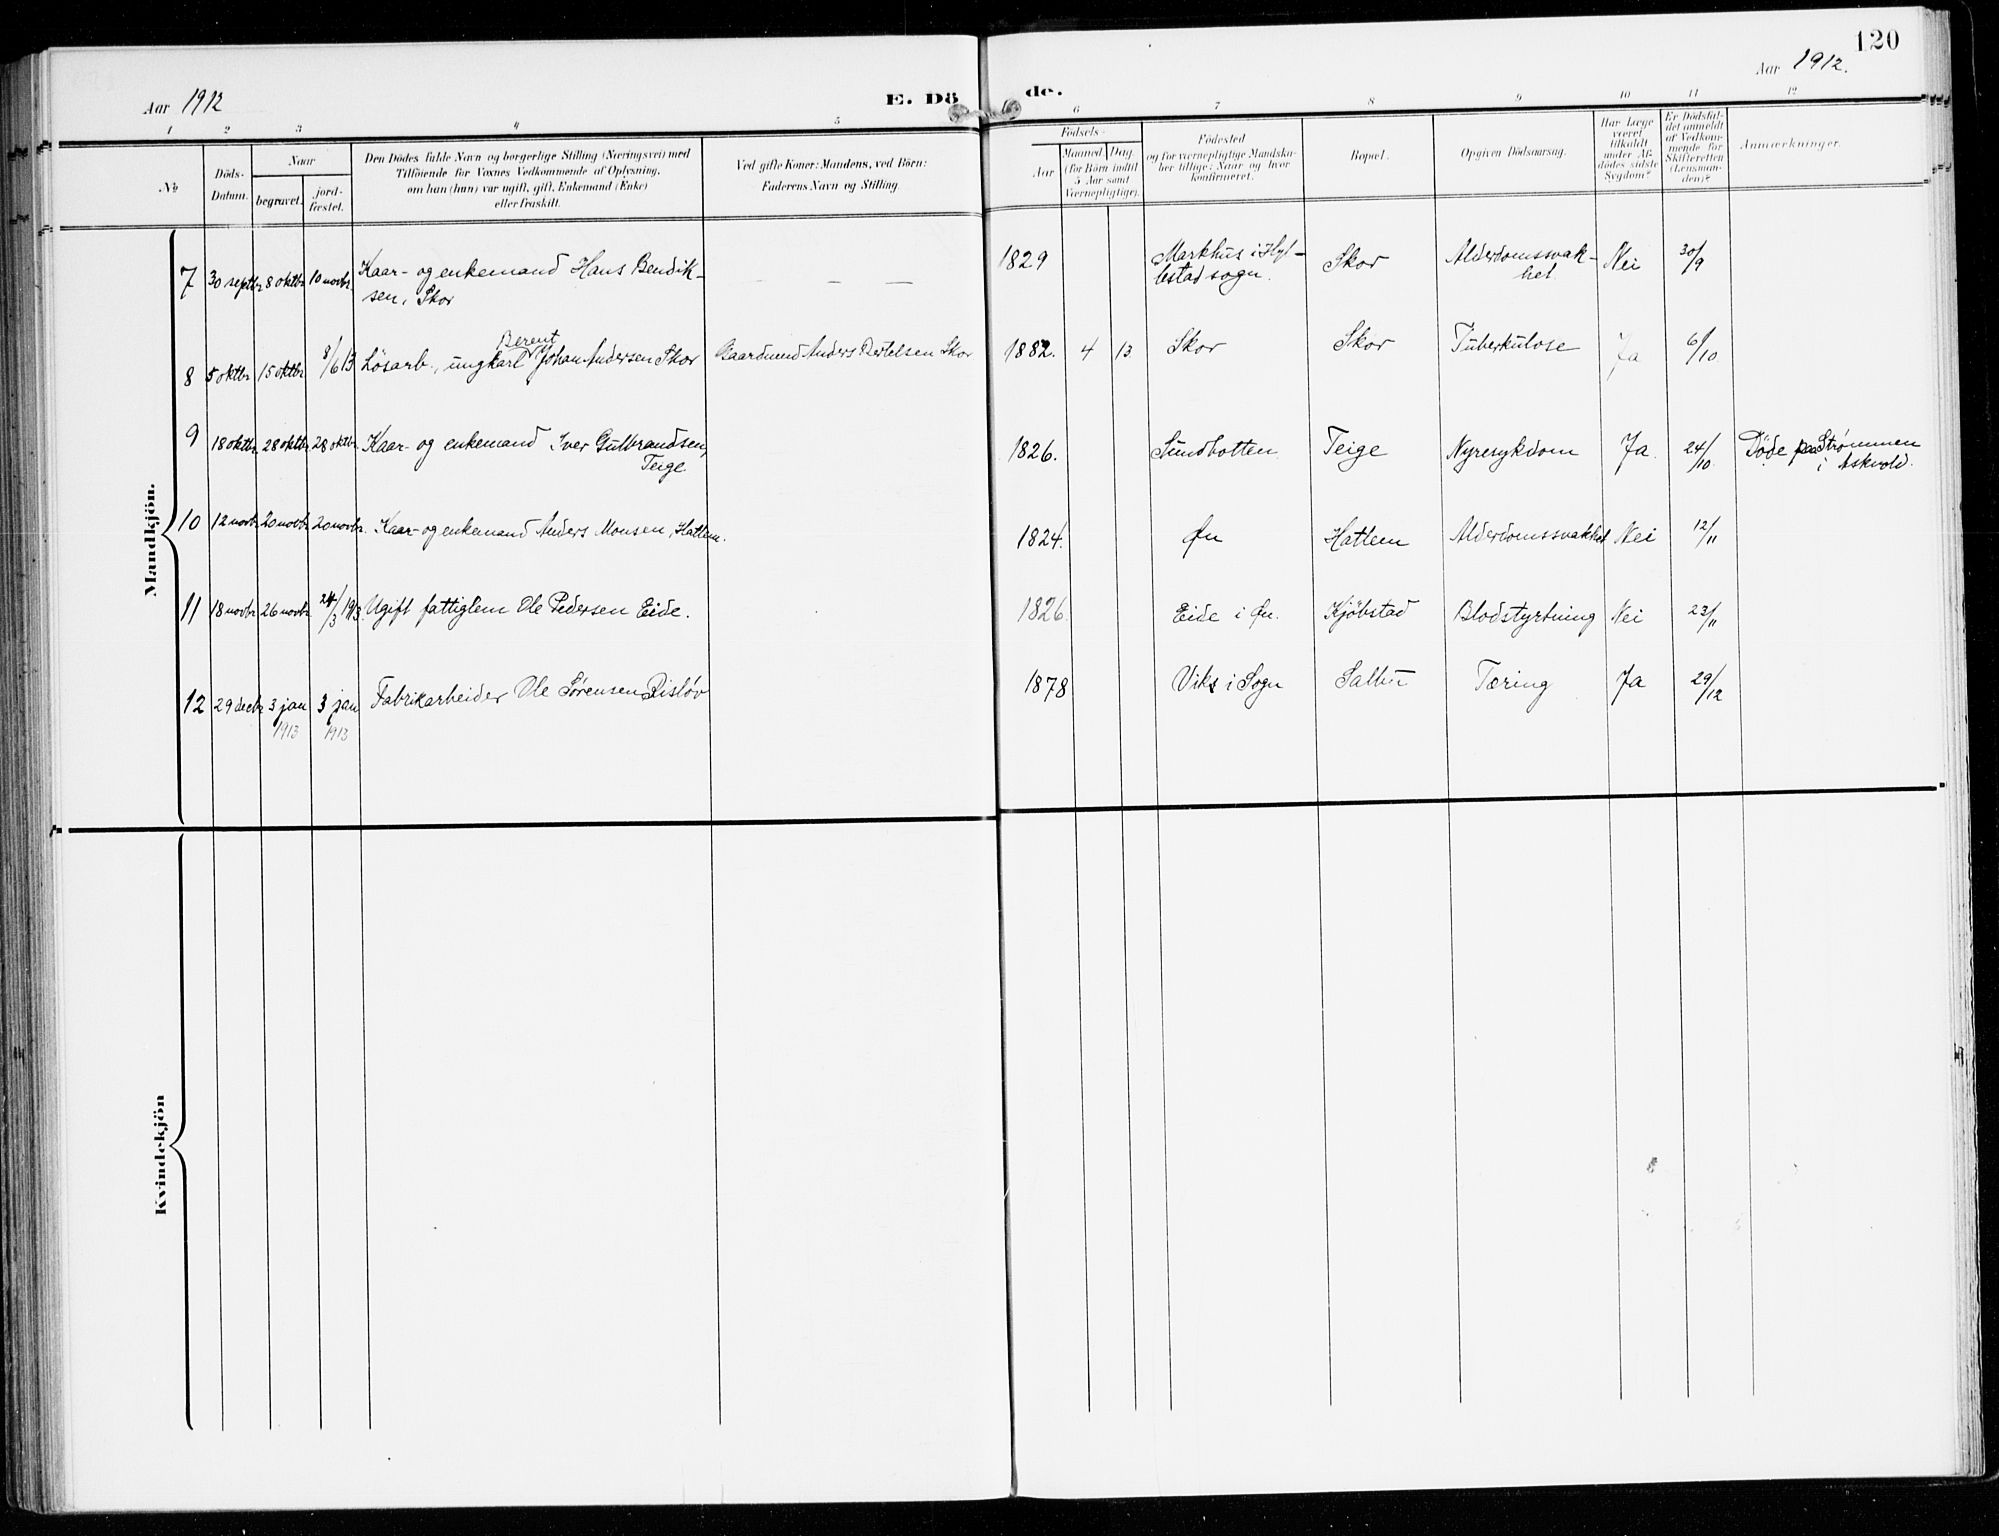 120
Aar 1912
E. Dö
de.
Aar 1912.
1 2 3 4 5 6 7 8 9 10 11 12
No
Döds-
Datum.
Naar
begravet.
jord-
fæstet.
Den Dödes fulde Navn og borgerlige Stilling (Næringsvei) med
Tilföiende for Voxnes Vedkommende af Oplysning,
om han (hun) var ugift, gift, Enkemand (Enke)
eller fraskilt.
Ved gifte Koner: Mandens, ved Börn:
Faderens Navn og Stilling.
Födsels-
Aar
Maaned. Dag.
(for Börn indtil
5 Aar samt
Værnepligtige).
Födested
og for værnepligtige Mandska-
ber tillige: Naar og hvor
konfirmeret.
Bopæl.
Opgiven Dödsaarsag.
Har Læge
været
tilkaldt
under Af-
dödes sidste
Sygdom?
Er Dödsfal-
det anmeldt
af Vedkom-
mende for
Skifteretten
(Lensman-
den)?
Anmærkninger.
Mandkjön.
7 30 septbr 8 oktbr 10 novbr. Kaar- og enkemand Hans Bendik-
sen, Skor
— — —
1829 Markhus i Hyl-
lestad sogn. Skor Alderdomssvak-
het. Nei 30/9
8 5 oktbr 15 oktbr 8/6 13 Lösarb., ungkarl Berent Johan Andersen Skor Gaardmand Anders Bertelsen Skor 1882. 4 13 Skor Skor Tuberkulose Ja 6/10
9 18 oktbr 28 oktbr 28 oktbr. Kaar- og enkemand Iver Gulbrandsen,
Teige
1826. Sundbotten Teige Nyresykdom Ja. 24/10. Døde paa Strømmen
i Askvold.
10 12 novbr. 20 novbr. 20 novbr. Kaar- og enkemand Anders Monsen, Hatlem. 1824. Øn Hatlem Alderdomssvakhet Nei 12/11
11 18 novbr. 26 novbr. 24/3 1913. Ugift fattiglem Ole Pedersen Eide. 1826. Eide i Øn. Kjöbstad Blodstyrtning Nei 23/11
12 29 decbr 3 jan 1913 3 jan 1913 Fabrikarbeider Ole Sørensen Risløv 1878 Viks i Sogn Salbu Tæring Ja 29/12
Kvindekjön